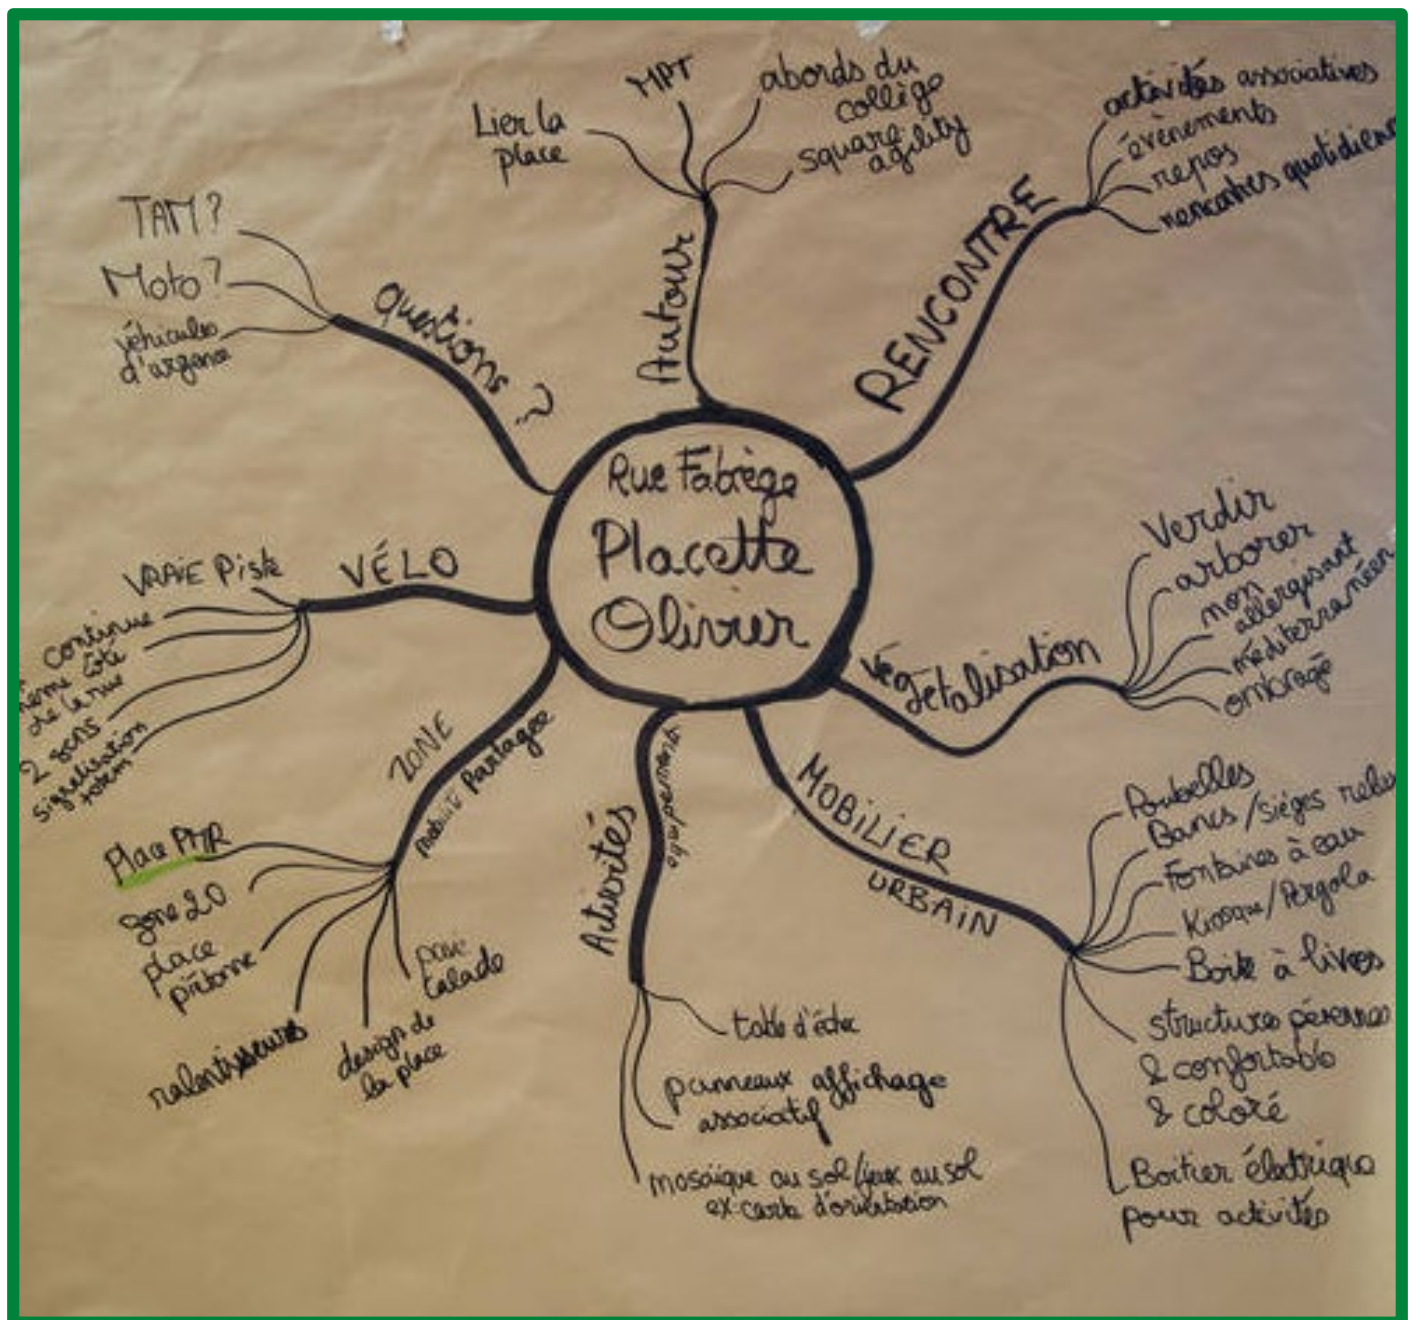 Rue Fabrège
Placette
Olivier
Autour
Lier la
place
MPT
abords du
collège
square agility
RENCONTRE
activités associatives
évènements
repos
rencontres quotidien
végétalisation
Verdir
arborer
non
allergisant
méditerranéen
ombragé
MOBILIER
URBAIN
Poubelles
Bancs / sièges
Fontaines à eau
Kiosque/Pergola
Boite à livres
structures pérennes
& confortable
& coloré
Boitier électrique
pour activités
Activités
équipements
table d'échec
panneaux affichage
associatif
mosaïque au sol/jeux au sol
ex: carte d'orientation
ZONE
Partagée
Place PMR
zone 20
place
piétonne
ralentisseurs
design de
la place
pavé
calade
VÉLO
VRAIE Piste
continue
côté
de la rue
2 sens
signalisation
totem
questions ?
TAM ?
Moto ?
véhicules
d'urgence